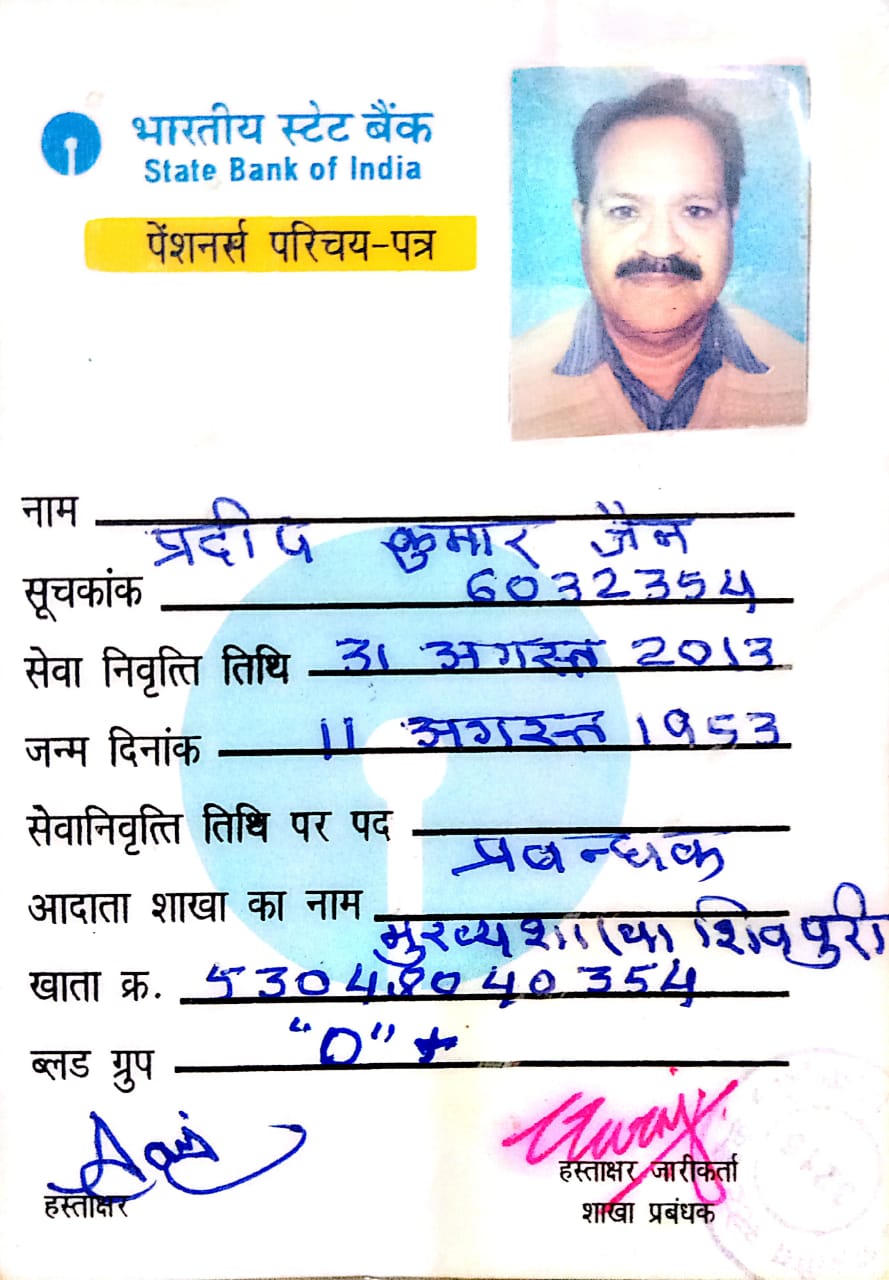 भारतीय स्टेट बैंक
State Bank of India
पेंशनर्स परिचय-पत्र
नाम प्रदीप कुमार जैन
सूचकांक 6032354
सेवा निवृत्ति तिथि 31 अगस्त 2013
जन्म दिनांक 11 अगस्त 1953
सेवानिवृत्ति तिथि पर पद प्रबन्धक
आदाता शाखा का नाम मुख्य शाखा शिवपुरी
खाता क्र. 53048040354
ब्लड ग्रुप "O" +
हस्ताक्षर
हस्ताक्षर जारीकर्ता
शाखा प्रबंधक